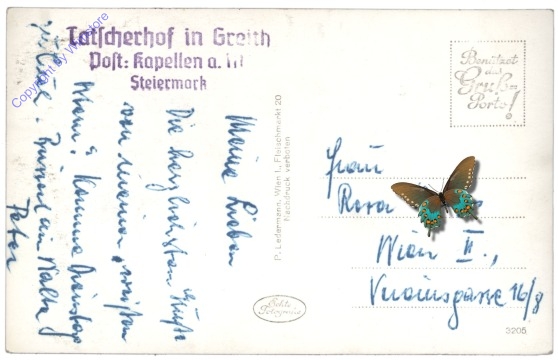 Tatscherhof in Greith
Post: Kapellen a. M
Steiermark
Copyright by
Meine Lieben
Die herzlichsten Grüße
von meiner
Komme Dienstag
Peter
P. Ledermann, Wien I., Fleischmarkt 20
Nachdruck verboten
Echte
Fotografie
Benützet
das
Gruß-
Porto!
Frau
Rosa
Wien II.,
Vereinsgasse 16/8
3205